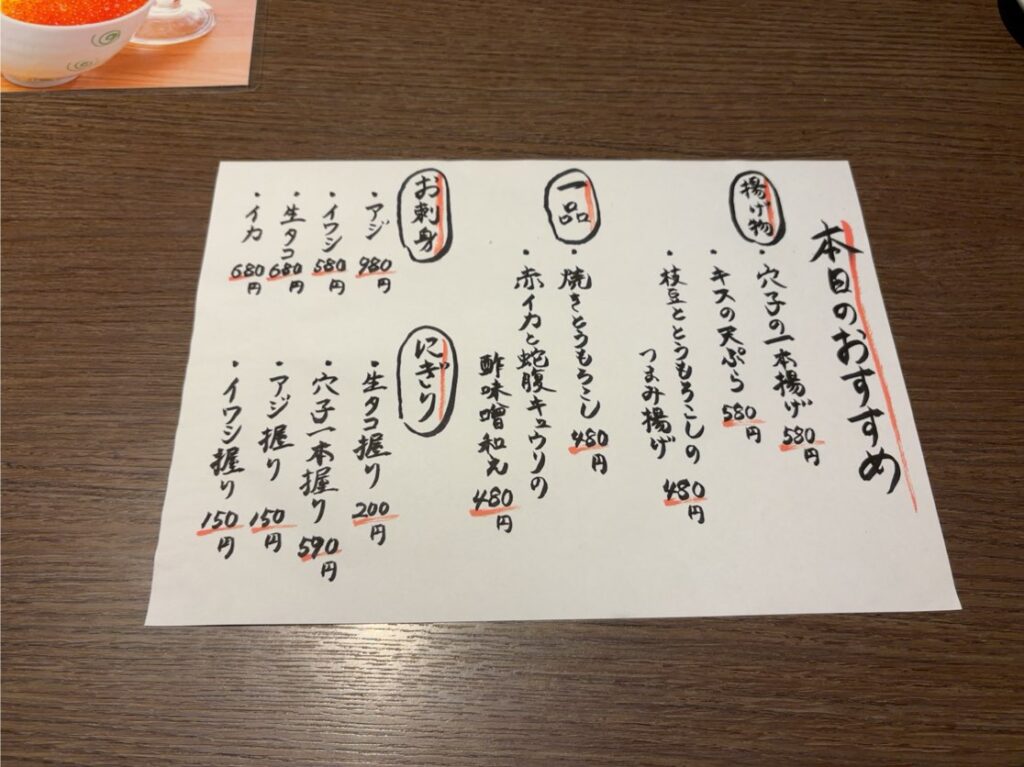 本日のおすすめ
揚げ物
・穴子の一本揚げ 580円
・キスの天ぷら 580円
・枝豆ととうもろこしの
つまみ揚げ 480円
一品
・焼きとうもろこし 480円
・赤イカと蛇腹キュウリの
酢味噌和え 480円
お刺身
・アジ 980円
・イワシ 580円
・生タコ 680円
・イカ 680円
にぎり
・生タコ握り 200円
・穴子一本握り 590円
・アジ握り 150円
・イワシ握り 150円